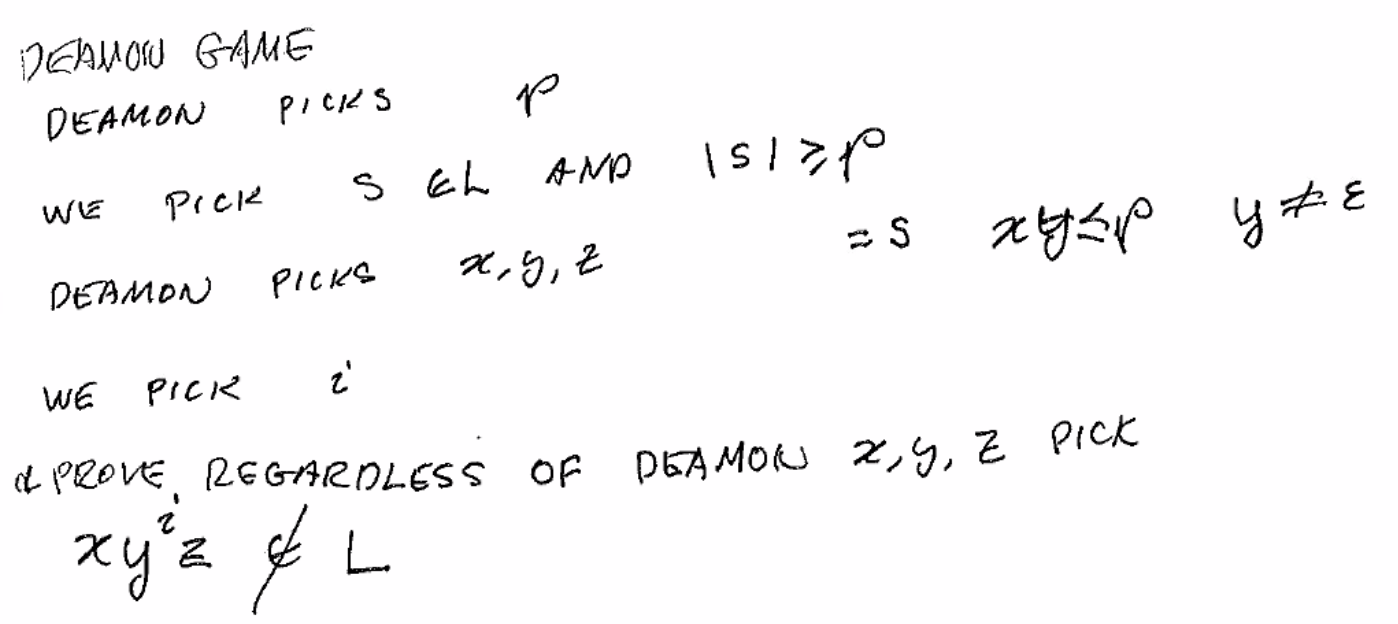 DEAMON GAME
DEAMON PICKS p
WE PICK S ∈ L AND |S| ≥ p
DEAMON PICKS x, y, z = S xy ≤ p y ≠ ε
WE PICK i
& PROVE, REGARDLESS OF DEAMON x, y, z PICK
xy^i z ∉ L